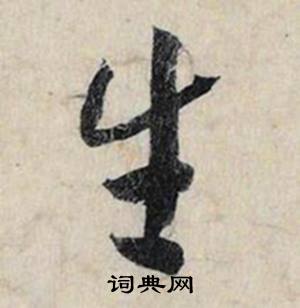 生
词典网